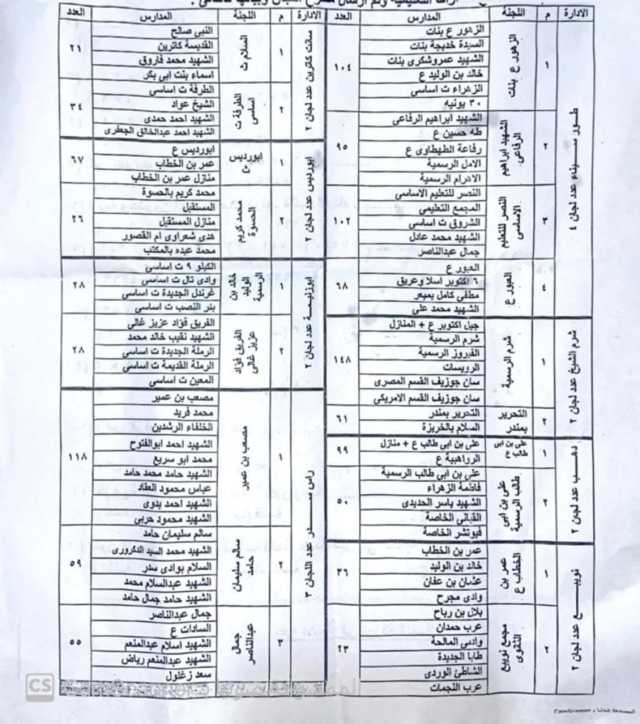 الادارة م اللجنة المدارس العدد
طور سيناء عدد لجان ٤
١ الزهور ع بنات ١٠٤
الزهور ع بنات
السيدة خديجة بنات
الشهيد عمروشكرى بنات
خالد بن الوليد ع
الزهراء ت اساسى
٣٠ يونيه
٢ الشهيد ابراهيم الرفاعى ٩٥
الشهيد ابراهيم الرفاعى
طه حسين ع
رفاعة الطهطاوى ع
الامل الرسمية
الاهرام الرسمية
٣ النصر للتعليم الاساسى ١٠٢
النصر للتعليم الاساسى
المجمع التعليمى
الشروق ت اساسى
الشهيد محمد عادل
جمال عبدالناصر
٤ العبور ع ٦٨
العبور ع
٦ اكتوبر اسلا وعريق
مطفى كامل بميعر
الشهيد محمد على
شرم الشيخ عدد لجان ٢
١ شرم الرسمية ١٤٨
جيل اكتوبر ع + المنازل
شرم الرسمية
الفيروز الرسمية
الرويسات
سان جوزيف القسم المصرى
سان جوزيف القسم الامريكى
٢ التحرير بمندر ٦١
التحرير بمندر
السلام بالخريزة
دهب عدد لجان ٢
١ على بن ابى طالب ع ٩٩
على بن ابى طالب ع + منازل
الرواهبية ع
٢ على بن ابى طالب الرسمية ٥٠
على بن ابى طالب الرسمية
فاطمة الزهراء
الشهيد ياسر الحديدى
القبانى الخاصة
فيوتشر الخاصة
نويبع عدد لجان ٢
١ عمر بن الخطاب ع ٣٦
عمر بن الخطاب
خالد بن الوليد
عثمان بن عفان
وادى مجرح
٢ مجمع نويبع التقوى ٢٣
بلال بن رباح
عرب حمدان
وادى المالحة
طابا الجديدة
الشاطئ الوردى
عرب النجمات
الادارة م اللجنة المدارس العدد
سانت كاترين عدد لجان ٢
١ السلام ث ٢١
النبى صالح
القديسة كاترين
الشهيد محمد فاروق
اسماء بنت ابى بكر
٢ الطرفة ت اساسى ٣٤
الطرفة ت اساسى
الشيخ عواد
الشهيد احمد حمدى
الشهيد احمد عبدالخالق الجعفرى
ابورديس عدد لجان ٢
١ ابورديس ع ٦٧
ابورديس ع
عمر بن الخطاب
منازل عمر بن الخطاب
٢ محمد كريم الحسوة ٢٦
محمد كريم بالحسوة
المستقبل
منازل المستقبل
هدى شعراوى ام القصور
محمد عبده بالمكتب
ابوزنيمة عدد لجان ٢
١ خالد بن الوليد الرسمية ٢٨
الكيلو ٩ ت اساسى
وادى تال ت اساسى
غرندل الجديدة ت اساسى
بئر النصب ت اساسى
٢ الفريق فؤاد عزيز غالى ٢٨
الفريق فؤاد عزيز غالى
الشهيد نقيب خالد محمد
الرملة الجديدة ت اساسى
الرملة القديمة ت اساسى
المعين ت اساسى
راس سدر عدد اللجان ٣
١ مصعب بن عمير ١١٨
مصعب بن عمير
محمد فريد
الخلفاء الرشدين
الشهيد احمد ابوالفتوح
محمد ابو سريع
الشهيد حامد محمد حامد
عباس محمود العقاد
الشهيد احمد بدوى
الشهيد محمود حربى
٢ سالم سليمان حامد ٥٩
سالم سليمان حامد
الشهيد محمد السيد الدكرورى
السلام بوادى سدر
الشهيد عبدالسلام محمد
الشهيد حامد جمال حامد
٣ جمال عبدالناصر ٥٥
جمال عبدالناصر
السادات ع
الشهيد اسلام عبدالمنعم
الشهيد عبدالمنعم رياض
سعد زغلول
CS